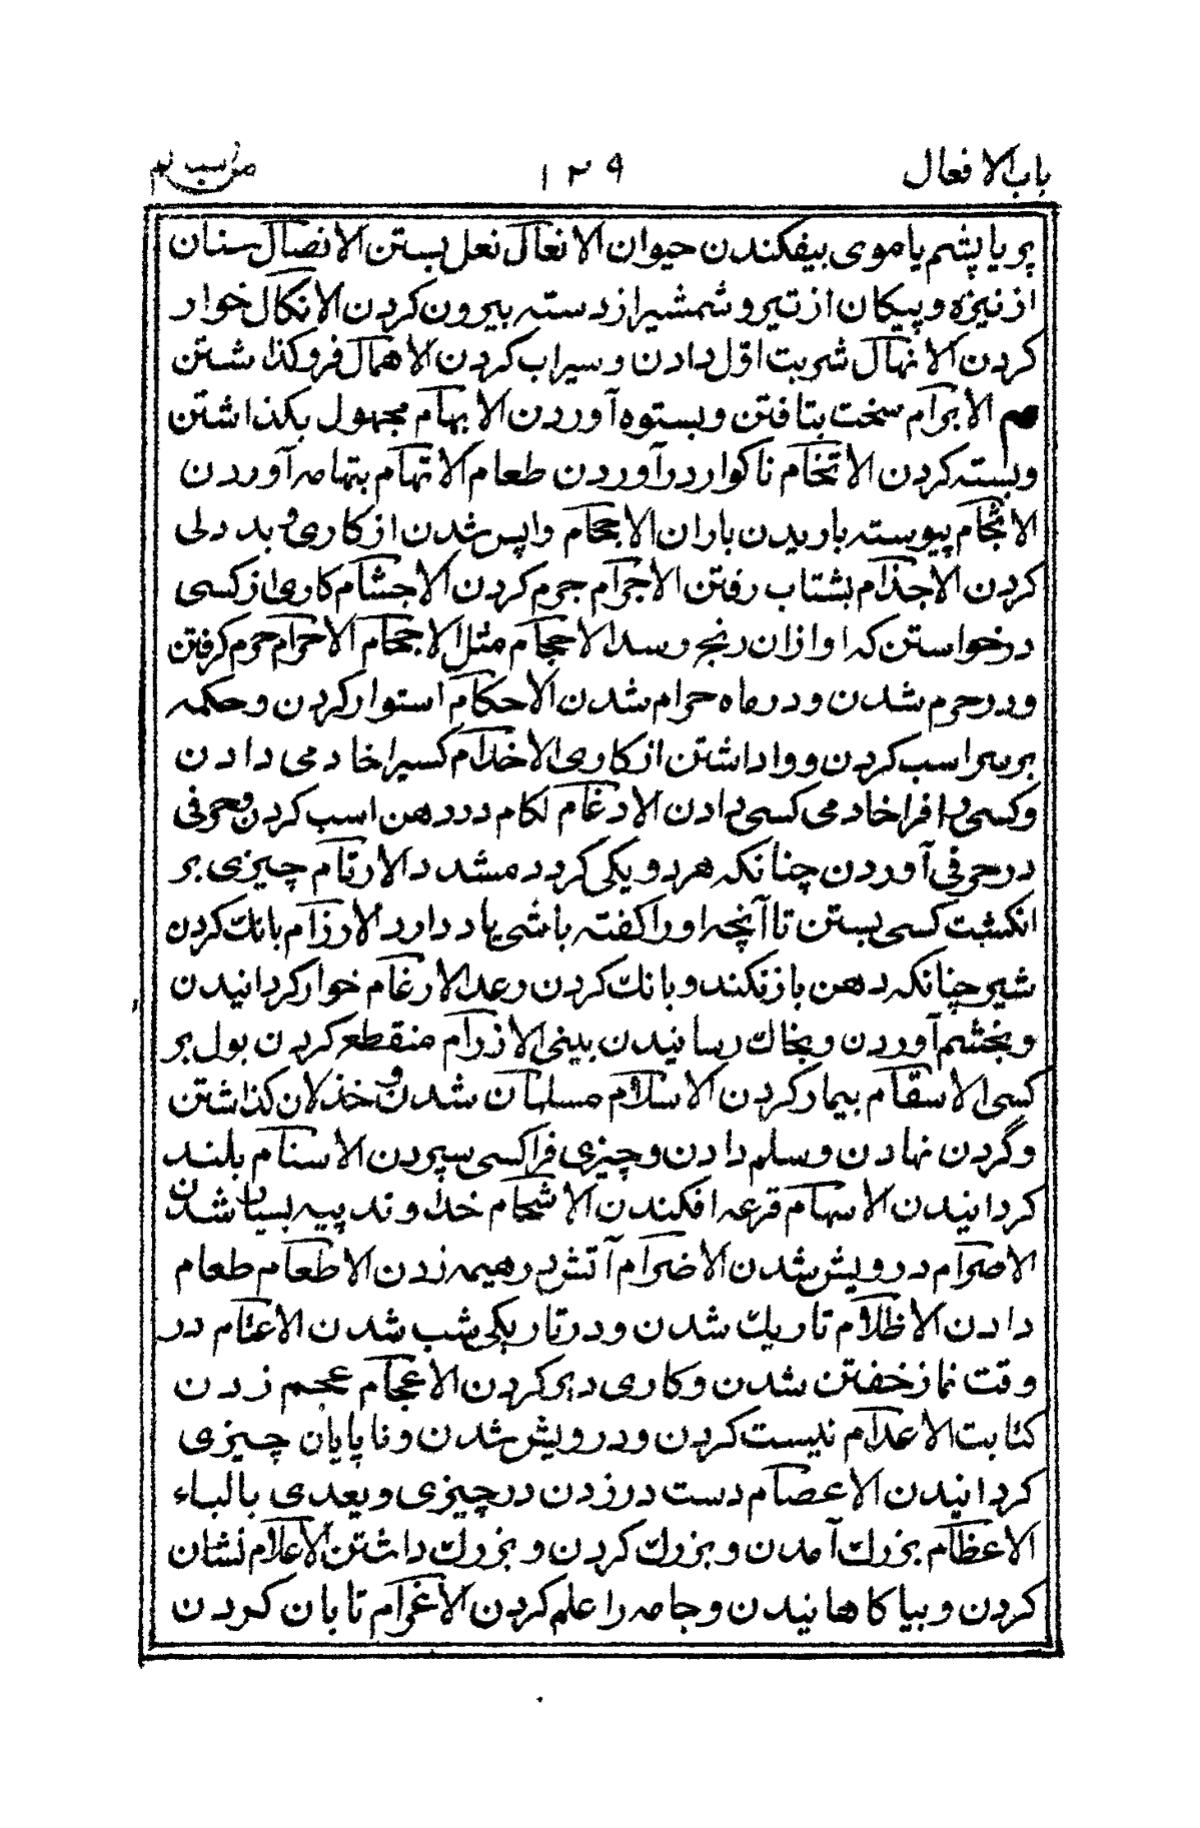 باب الافعال ۱۲۹
پر یا پشم یا موی بیفکندن حیوان الانعال نعل بستن الانصال سنان
از نیزه و پیکان از تیر و شمشیر از دسته بیرون کردن الانکال خوار
کردن الانهال شربت اوّل دادن و سیراب کردن الاهمال فرو کذاشتن
م الابرام سخت بتافتن و بستوه آوردن الابهام مجهول بکذاشتن
و بسته کردن الاتخام ناکوارد آوردن طعام الاتهام بتهامه آوردن
الاثجام پیوسته باریدن باران الاجحام واپس شدن از کاری و بد دلی
کردن الاجذام بشتاب رفتن الاجرام جرم کردن الاجشام کاری از کسی
درخواستن که او ازان رنجه رسد الاحجام مثل الاجحام الاحرام حرم کرفتن
و در حرم شدن و در ماه حرام شدن الاحکام استوار کردن و حکمه
بر سر اسب کردن و واداشتن از کاری الاخدام کسیرا خادمی دادن
و کسی را فرا خادمی کسی دادن الادغام لکام در دهن اسب کردن و حرفی
در حرفی آوردن چنانکه هر دو یکی کردد مشدد الارتام چیزی بر
انکشت کسی بستن تا آنچه او را کفته باشی یاد دارد الارزام بانك کردن
شیر چنانکه دهن باز نکند و بانك کردن رعد الارغام خوار کردانیدن
و بخشم آوردن و بخاك رسانیدن بینی الازرام منقطع کردن بول بر
کسی الاسقام بیمار کردن الاسلام مسلمان شدن و خذلان کذاشتن
و گردن نهادن و سلم دادن و چیزی فرا کسی سپردن الاسنام بلند
کردانیدن الاسهام قرعه افکندن الاشحام خداوند پیه بسیار شدن
الاصرام درویش شدن الاضرام آتش در هیمه زدن الاطعام طعام
دادن الاظلام تاریك شدن و در تاریکی شب شدن الاعتام در
وقت نماز خفتن شدن و کاری دیر کردن الاعجام عجم زدن
کتابت الاعدام نیست کردن و درویش شدن و نا پایان چیزی
کردانیدن الاعصام دست در زدن در چیزی و یعدی بالباء
الاعظام بزرك آمدن و بزرك کردن و بزرك داشتن الاعلام نشان
کردن و بیاکاهانیدن و جامه را علم کردن الاغرام تابان کردن